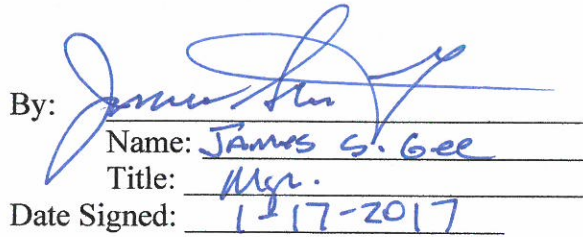 By:
Name: JAMES S. Gee
Title: Mgr.
Date Signed: 1-17-2017